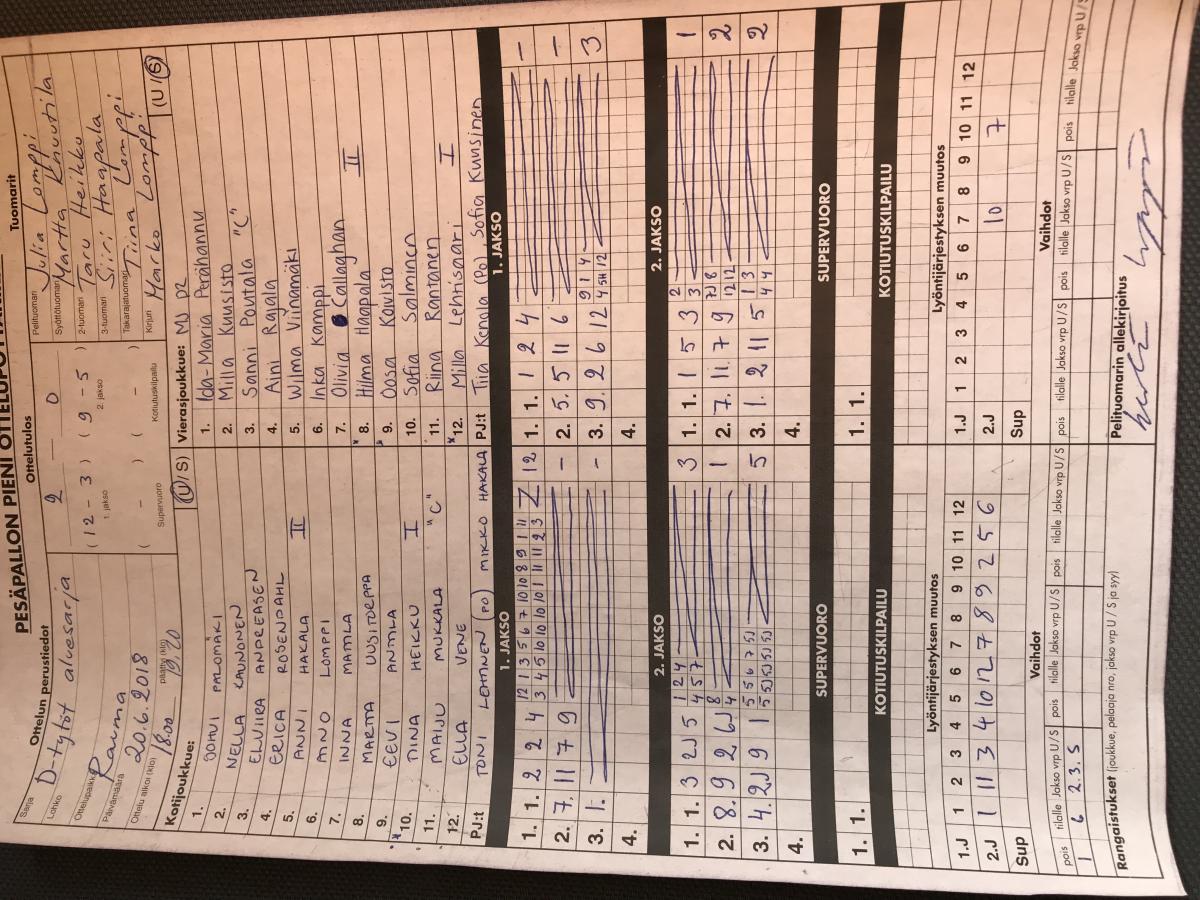 PESÄPALLON PIENI OTTELUPÖYTÄKIRJA
Ottelun perustiedot
Ottelutulos
Tuomarit
Sarja D-tytöt aluesarja
Lohko
Ottelupaikka Rauma
Päivämäärä 20.6.2018
Ottelu alkoi (klo) 1800 päättyi (klo) 19.20
2 – 0
(12 – 3) (9 – 5)
1. jakso 2. jakso
( – ) ( – )
Supervuoro Kotiutuskilpailu
Pelituomari Julia Lomppi
Syöttötuomari Martta Knuutila
2-tuomari Taru Heikko
3-tuomari Siiri Haapala
Takarajatuomari Tiina Lomppi
Kirjuri Marko Lomppi
Kotijoukkue: (U/S)
1. OUHVI PALOMÄKI
2. NELLA KAUNONEN
3. ELVIIRA ANDREASEN
4. ERICA ROSENDAHL
5. ANNI HAKALA II
6. AINO LOMPPI
7. INNA MATTILA
8. MARTTA UUSITORPPA
9. EEVI ANTTILA
10. TIINA HEIKKU I
11. MAIJU MUKKALA "C"
12. ELLA VENE
PJ:t TONI LEHTINEN (PO) MIKKO HAKALA
Vierasjoukkue: MJ D2 (U/S)
1. Ida-Maria Perähannu
2. Milla Kuusisto
3. Sanni Poutala "C"
4. Aini Rajala
5. Wilma Viinamäki
6. Inka Kamppi
7. Olivia Callaghan
8. Hilma Haapala II
9. Oosa Koivisto
10. Sofia Salminen
11. Riina Rantanen
12. Milla Lehtisaari I
PJ:t Tiia Kenola (Po), Sofia Kuusinen
1. JAKSO
1. 1. 2 2 4 12 1 3 5 6 7 10 10 8 9 1 11 12
3 4 5 10 10 10 10 1 11 11 2 3
2. 7. 11 7 9 –
3. 1. –
4.
1. JAKSO
1. 1. 1 2 4 –
2. 5. 5 11 6 –
3. 9. 2 6 12 9 1 4 3
4 5H 12
4.
2. JAKSO
1. 1. 3 2J 5 1 2 4 3
4 5 7
2. 8. 9 2 6J 8 1
4
3. 4. 2J 9 1 5 5 6 7 5J 5
5J 5J 5J 5J
4.
2. JAKSO
1. 1. 1 5 3 2 1
3
2. 7. 11. 7 9 7J 8 2
12 12
3. 1. 2 11 5 1 3 2
4 4
4.
SUPERVUORO
1. 1.
SUPERVUORO
1. 1.
KOTIUTUSKILPAILU
KOTIUTUSKILPAILU
Lyöntijärjestyksen muutos
1.J 1 2 3 4 5 6 7 8 9 10 11 12
2.J 1 11 3 4 10 12 7 8 9 2 5 6
Sup
Lyöntijärjestyksen muutos
1.J 1 2 3 4 5 6 7 8 9 10 11 12
2.J 10 7
Sup
Vaihdot
pois tilalle Jakso vrp U/S pois tilalle Jakso vrp U/S pois tilalle Jakso vrp U/S
1 6 2. 3. S
Vaihdot
pois tilalle Jakso vrp U/S pois tilalle Jakso vrp U/S pois tilalle Jakso vrp U/S
Rangaistukset (joukkue, pelaaja nro, jakso vrp U / S ja syy)
Pelituomarin allekirjoitus